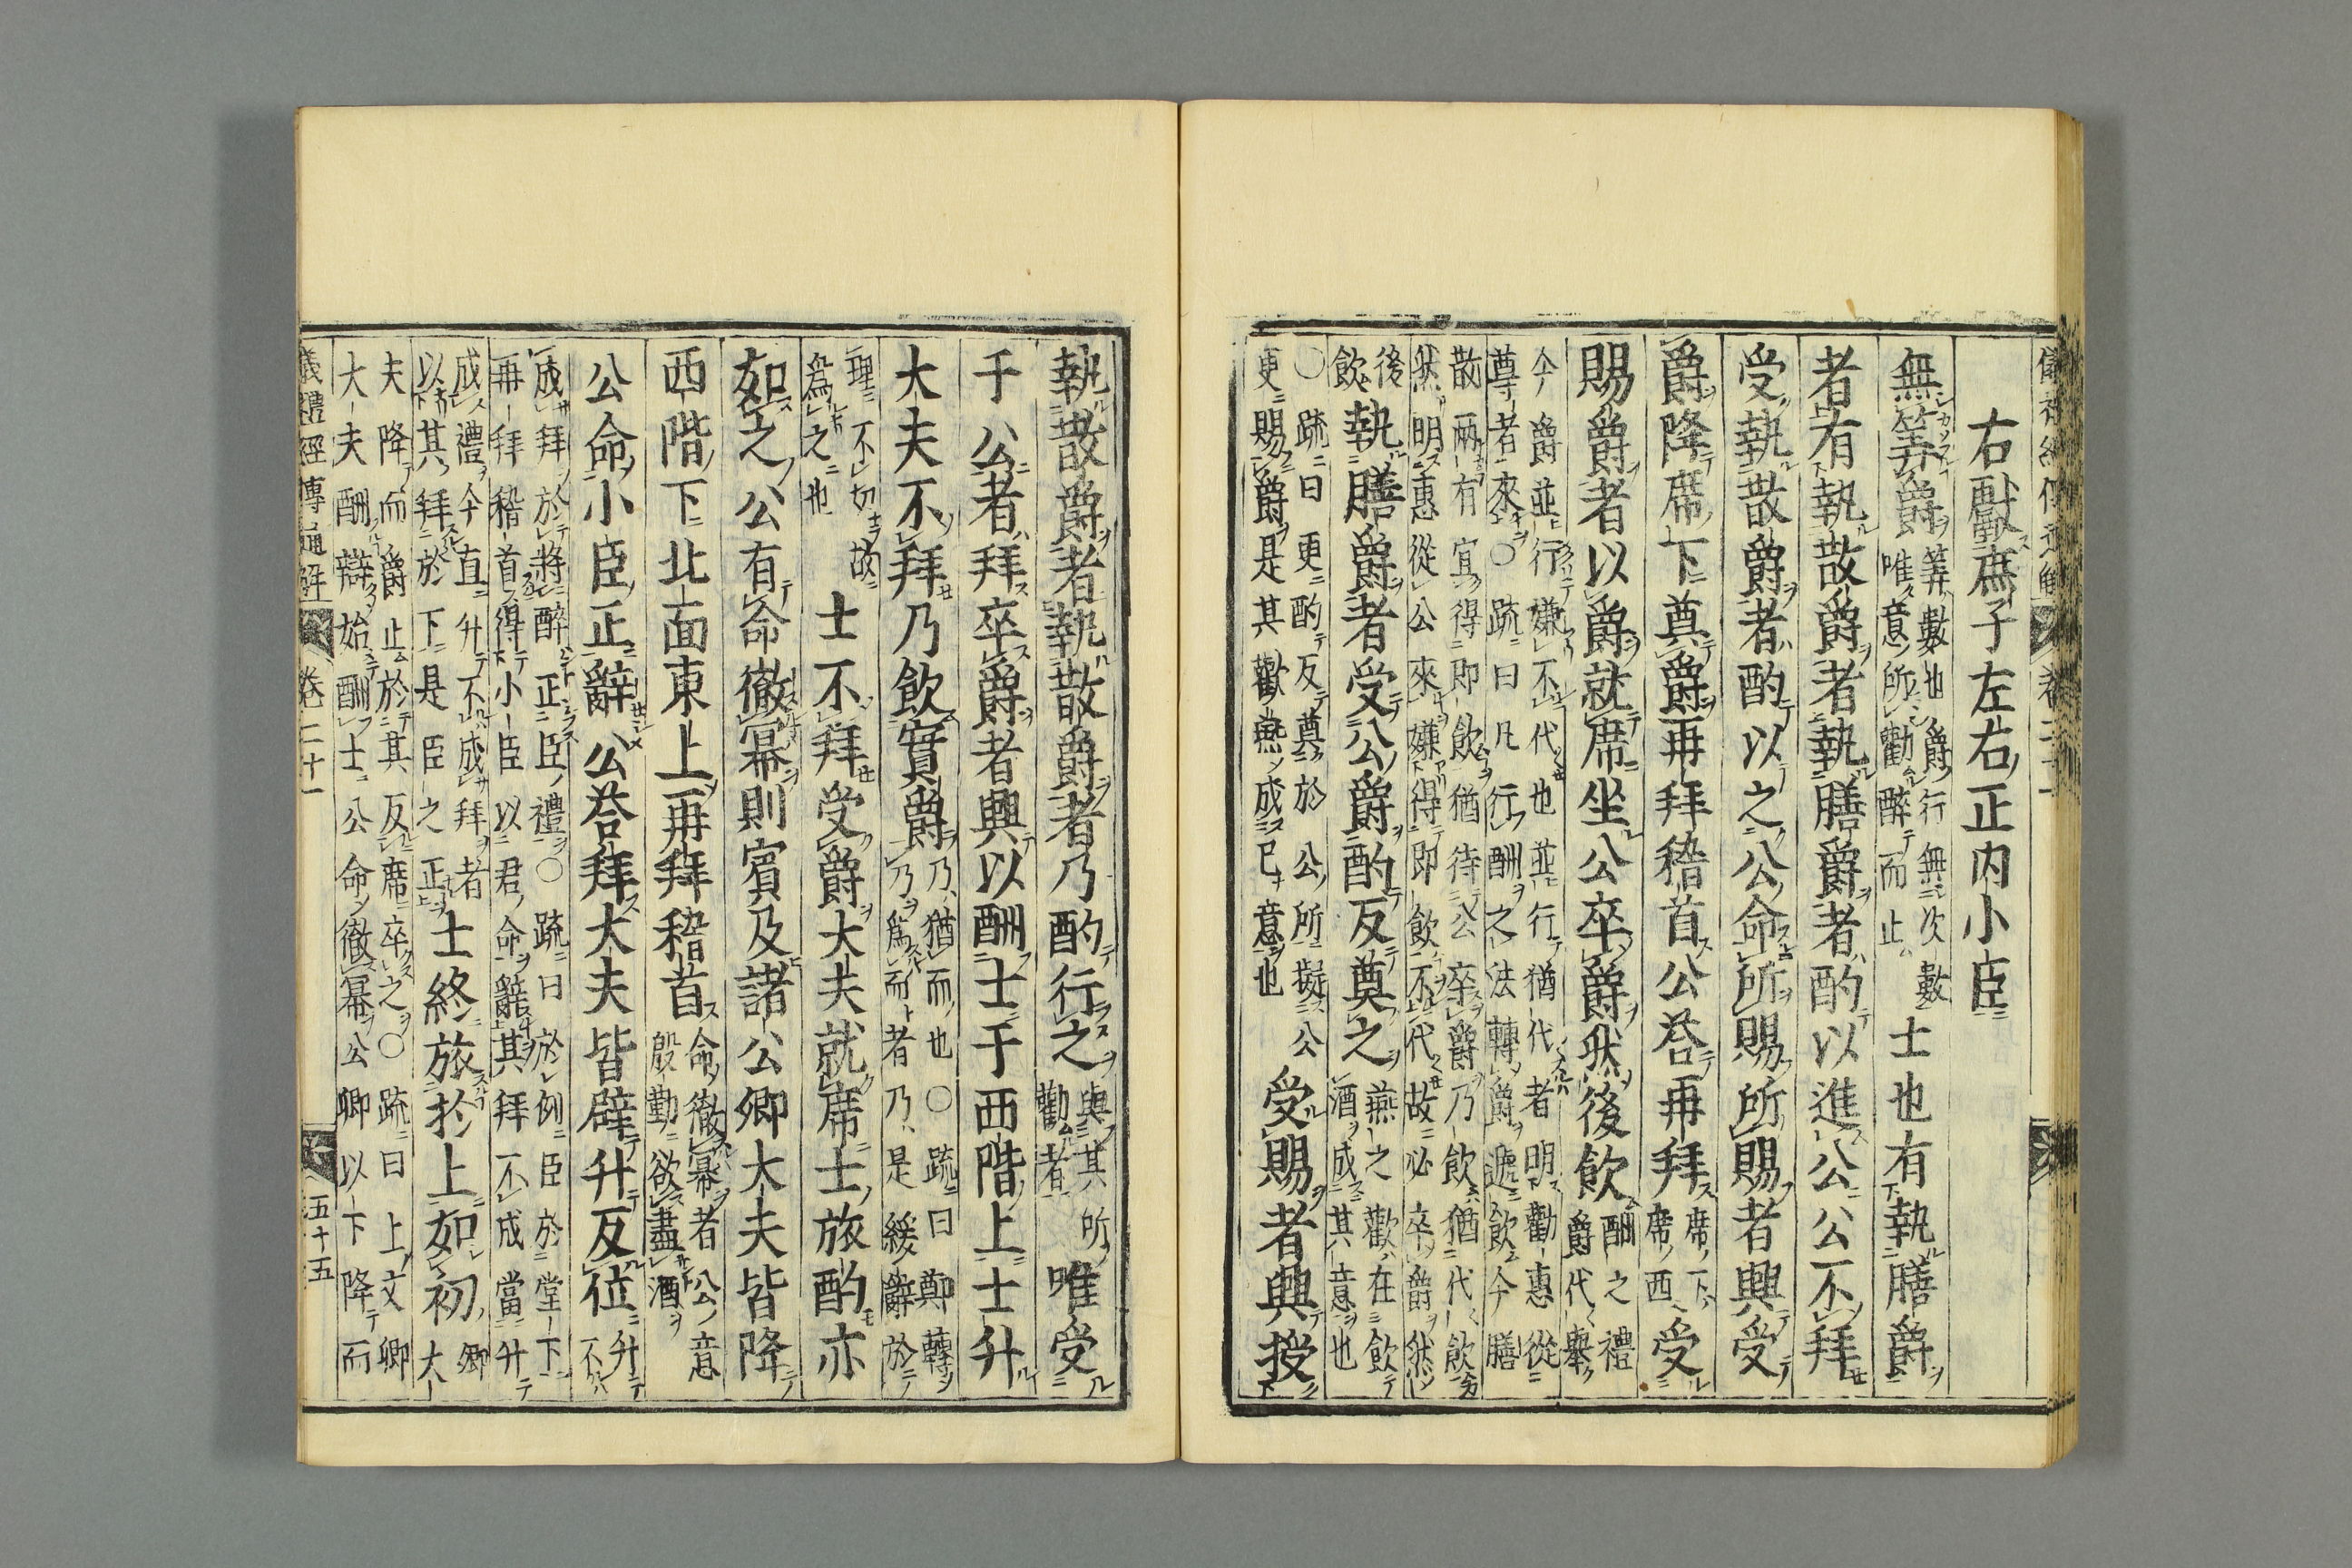 儀禮經傳通解 卷二十一
右獻庶子左右正内小臣
無筭爵筭數也爵行無次數唯意所勸醉而止士也有執膳爵
者有執散爵者執膳爵者酌以進公公不拜
受執散爵者酌以之公命所賜所賜者興受
爵降席下奠爵再拜稽首公荅再拜席下席西受
賜爵者以爵就席坐公卒爵然後飲酬之禮爵代舉
今爵並行嫌不代也並行猶代者明勸惠從
尊者來○疏曰凡行酬之法轉爵遞飲今膳
散兩有宜得即飲猶待公卒爵乃飲猶代飲
然明惠從公來嫌得即飲不代故必卒爵然
後飲執膳爵者受公爵酌反奠之燕之歡在飲酒成其意也
○疏曰更酌反奠於公所擬公
更賜爵是其歡燕成已意也受賜者興授
執散爵者執散爵者乃酌行之與其所勸者唯受
于公者拜卒爵者興以酬士于西階上士升
大夫不拜乃飲實爵乃猶而也○疏曰鄭轉乃爲而者乃是緩辭於
理不切故爲之也士不拜受爵大夫就席士旅酌亦
如之公有命徹冪則賓及諸公卿大夫皆降
西階下北面東上再拜稽首命徹冪者公意殷勤欲盡酒
公命小臣正辭公荅拜大夫皆辟升反位升不
成拜於將醉正臣禮○疏曰於例臣於堂下
再拜稽首得小臣以君命辭其拜不成當升
成禮今直升不成拜者
以其拜於下是臣之正士終旅於上如初卿大
夫降而爵止於其反席卒之○疏曰上文卿
大夫酬辯始酬士公命徹冪公卿以下降而
儀禮經傳通解 卷二十一 五十五